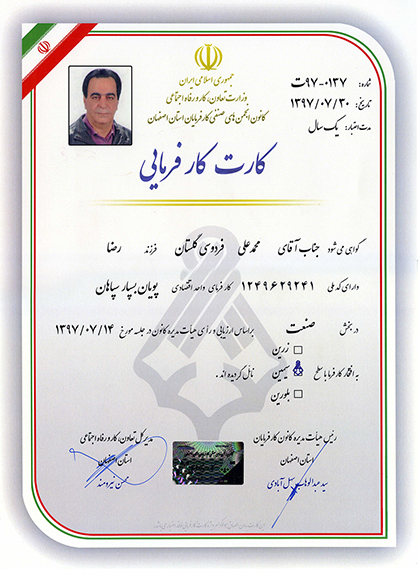 جمهوری اسلامی ایران
وزارت تعاون، کار و رفاه اجتماعی
کانون انجمن های صنفی کارفرمایان استان اصفهان
شماره: ۰۱۳۷-۹۷ت
تاریخ: ۱۳۹۷/۰۷/۳۰
مدت اعتبار: یک سال
کارت کارفرمایی
گواهی می شود جناب آقای محمدعلی فردوسی گلستان فرزند رضا
دارای کد ملی ۱۲۴۹۶۲۹۲۴۱ کارفرمای واحد اقتصادی پویان بسپار سپاهان
در بخش صنعت براساس ارزیابی و رأی هیأت مدیره کانون در جلسه مورخ ۱۳۹۷/۰۷/۱۴
زرین
به افتخار کارفرما با سطح سیمین نائل گردیده اند.
بلورین
رئیس هیأت مدیره کانون کارفرمایان
استان اصفهان
سید عبدالوهاب سهل آبادی
مدیرکل تعاون، کار و رفاه اجتماعی
استان اصفهان
محسن نیرومند